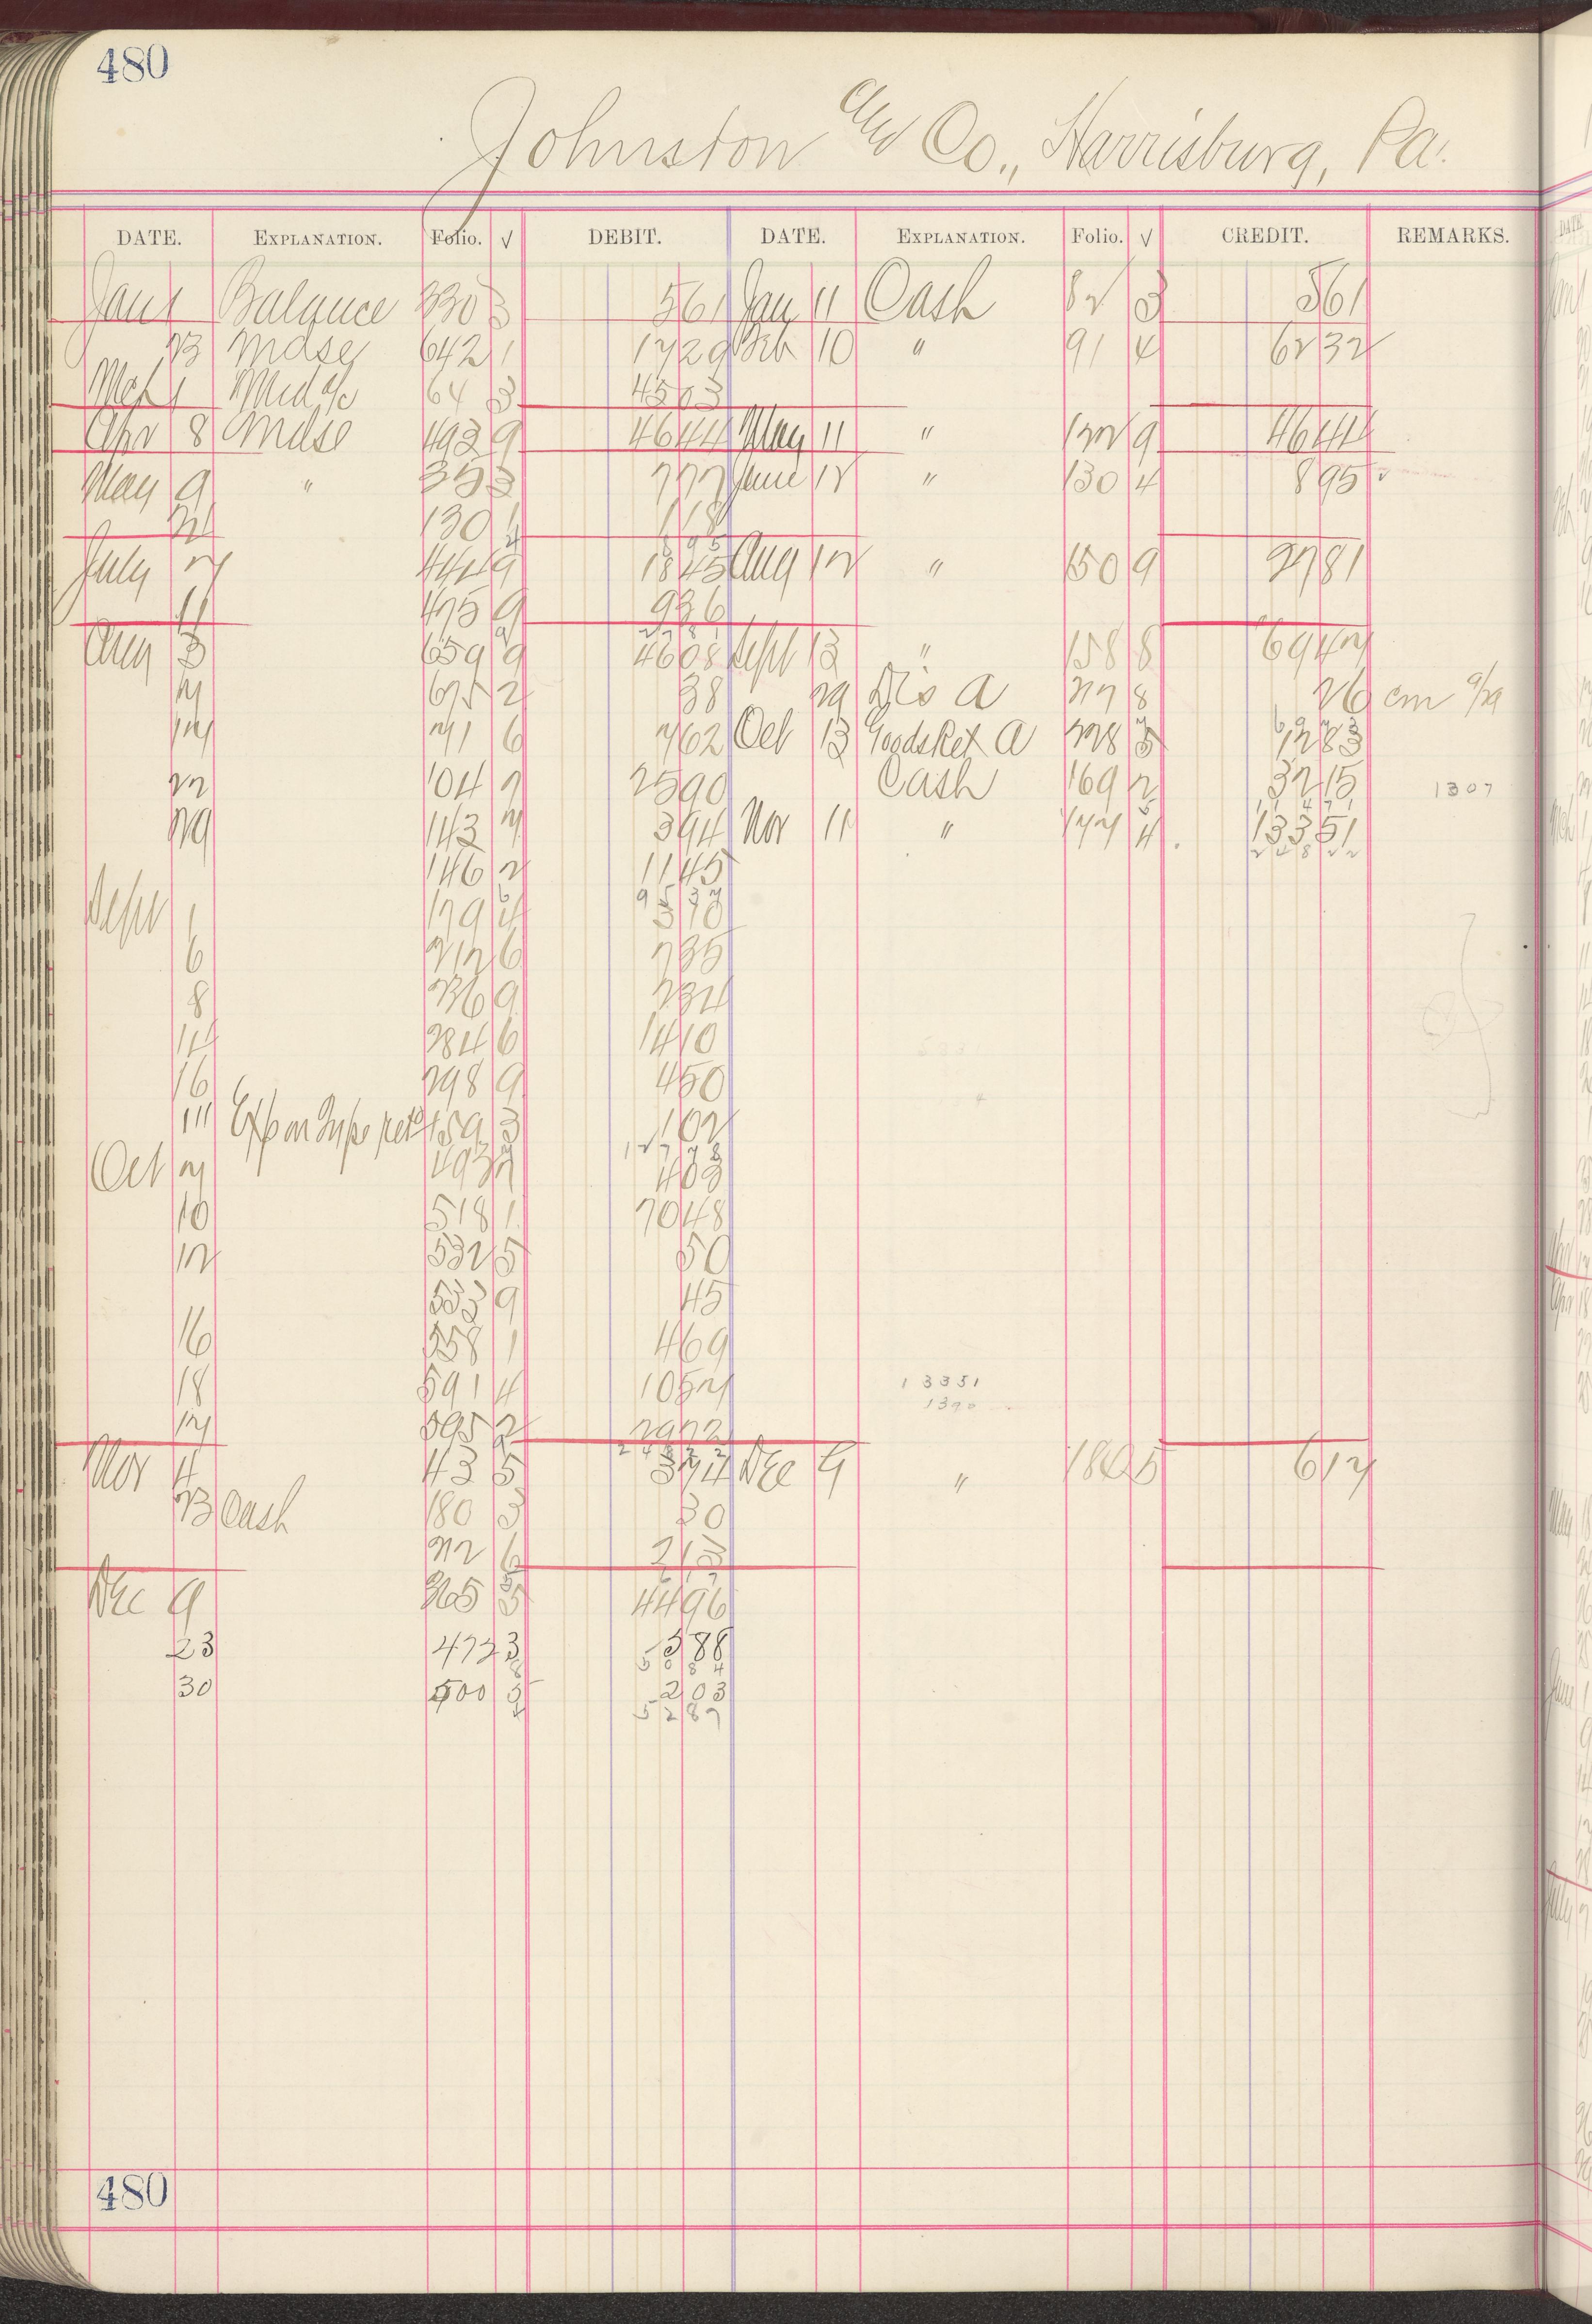 480
Johnston and Co., Harrisburg, Pa.
DATE. EXPLANATION. Folio. √ DEBIT. DATE. EXPLANATION. Folio. √ CREDIT. REMARKS.
Jan 1 Balance 330 3 561 Jan 11 Cash 82 3 561
23 Mdse 642 1 1729 Feb 10 " 91 4 6232
Mch 1 64 3 4503
Apr 8 Mdse 493 9 4644 May 11 " 122 9 4644
May 9 " 353 777 June 12 " 130 4 895
130 4 118
895
July 2 444 9 1845 Aug 12 " 150 9 2781
11 475 9 936
Aug 3 659 9 4608 Sept 13 " 158 8 6942
675 2 38 29 Dis a 277 8 26 cm 9/29
71 6 762 Oct 13 Goods Ret a 228 3 1283
22 104 2 2590 Cash 169 2 3215 1307
29 143 394 Nov 11 " 4 13351
146 2 1145 24822
9537
Sept 1 179 4 370
6 212 6 735
8 236 9 234
14 284 6 1410
16 298 9 450
111 Exp on 159 3 102
Oct 2 493 403
10 518 1 7048
12 532 5 50
533 9 45
16 558 1 469
18 591 4 1052 13351
595 2 2972 1390
24822
Nov 4 43 5 374 Dec 9 " 180 5 617
23 Cash 180 3 30
212 6 213
Dec 9 365 5 4496
23 472 3 588
5084
30 500 3 203
5287
480